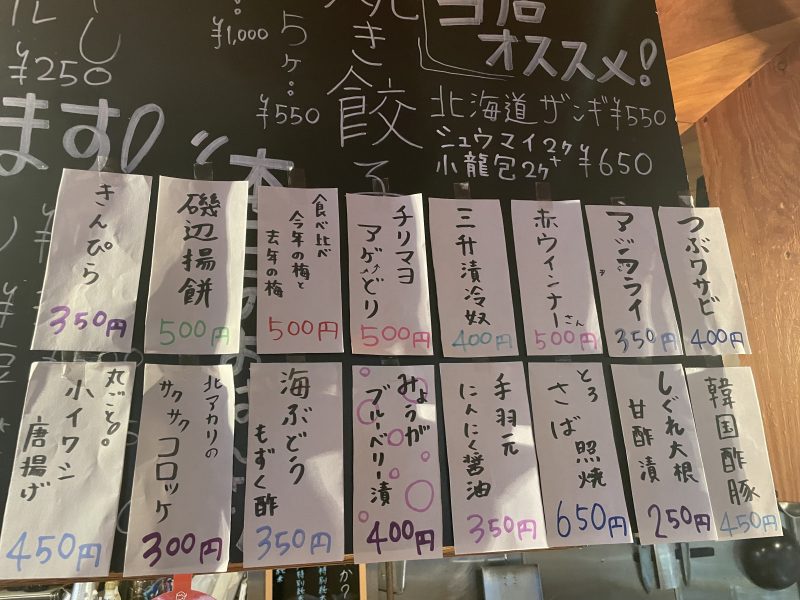 ¥250
ます!
¥1,000
5ヶ
¥550
焼き餃子
当店
オススメ!
北海道ザンギ¥550
シュウマイ2ヶ+
小龍包2ヶ ¥650
つぶワサビ
400円
アジフライ
350円
赤ウインナーさん
500円
三升漬冷奴
400円
チリマヨ
アゲどり
500円
食べ比べ
今年の梅と
去年の梅
500円
磯辺揚餅
500円
きんぴら
350円
韓国酢豚
450円
しぐれ大根
甘酢漬
250円
とろ
さば照焼
650円
手羽元
にんにく醤油
350円
みょうが
ブルーベリー漬
400円
海ぶどう
もずく酢
350円
北アカリの
サクサク
コロッケ
300円
丸ごと。
小イワシ
唐揚げ
450円